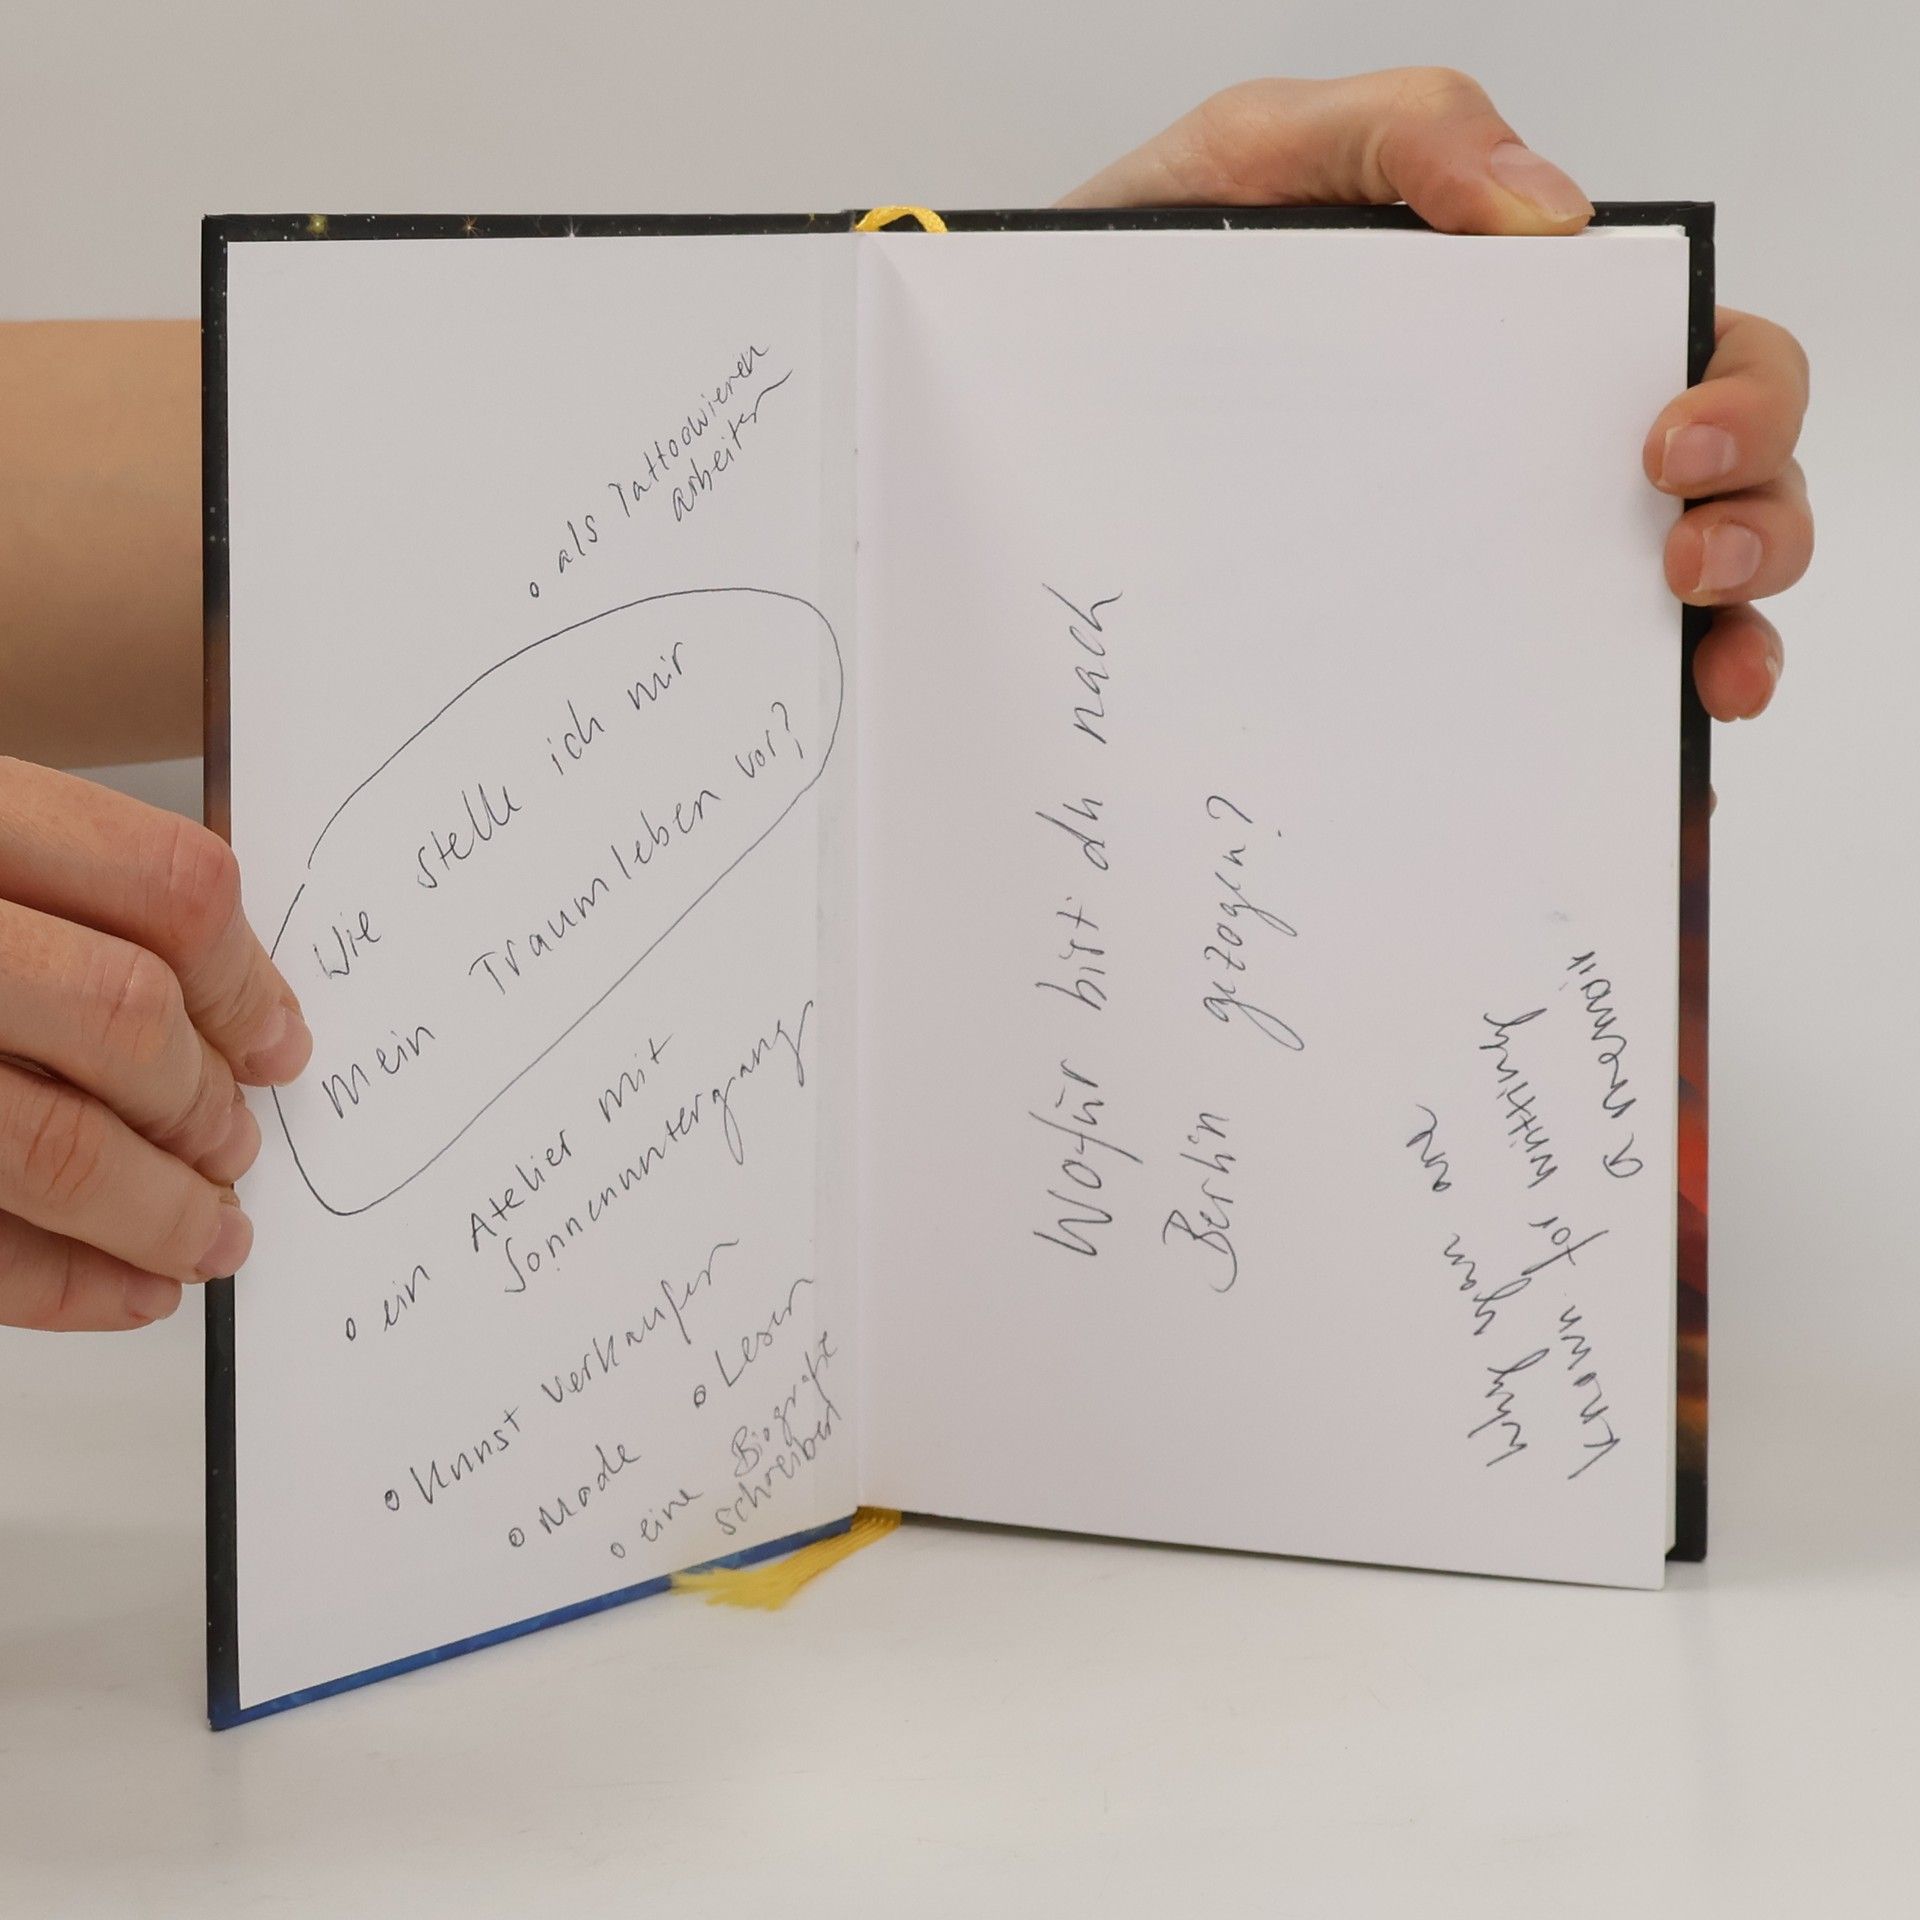 o als Tattoowieren
arbeiten
Wie stelle ich mir
mein Traumleben vor?
o ein Atelier mit
Sonnenuntergang
o Kunst verkaufen
o Mode
o Lesen
o eine Biografie
schreiben
Wofür bist du nach
Berlin gezogen?
Why you are
known for writting
a memoir